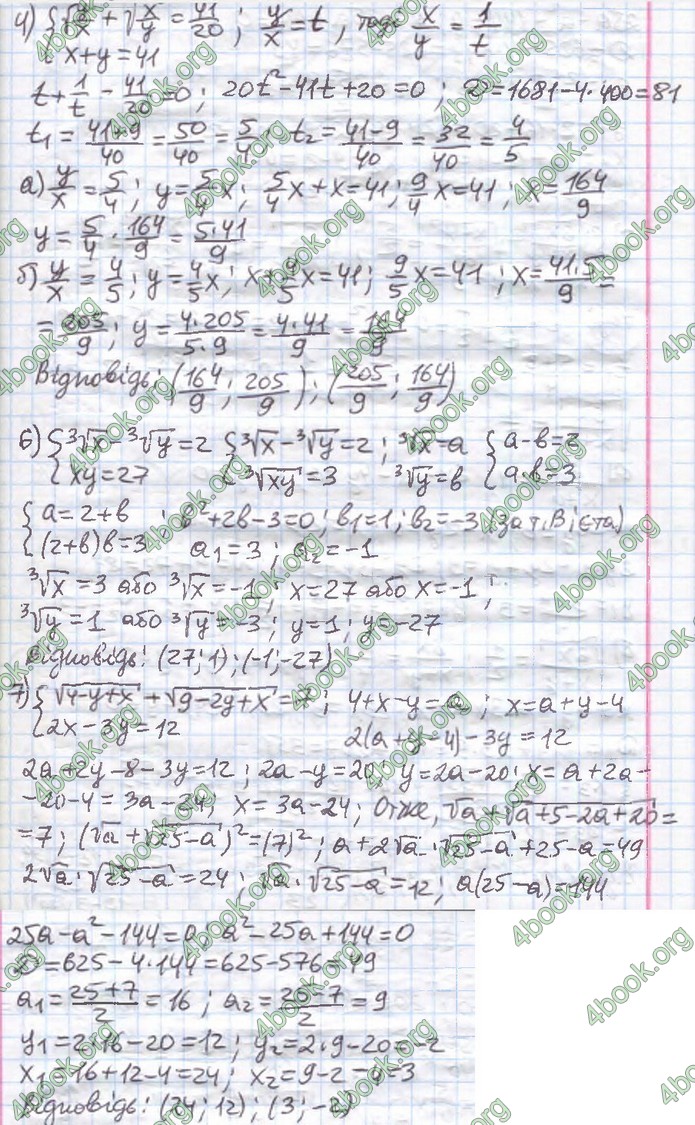 4) { √y/x + √x/y = 41/20 ; y/x = t, тоді x/y = 1/t
{ x+y=41
t + 1/t − 41/20 = 0; 20t²−41t+20=0; D=1681−4·400=81
t₁ = 41+9/40 = 50/40 = 5/4 t₂ = 41−9/40 = 32/40 = 4/5
а) y/x = 5/4; y = 5/4x; 5/4x+x=41; 9/4x=41; x = 164/9
y = 5/4 · 164/9 = 5·41/9
б) y/x = 4/5; y = 4/5x; x+4/5x=41; 9/5x=41; x = 41·5/9 =
= 205/9; y = 4·205/5·9 = 4·41/9 = 164/9
Відповідь: (164/9; 205/9); (205/9; 164/9)
6) { ³√x − ³√y = 2 { ³√x − ³√y = 2; ³√x = a { a−b=2
{ xy=27 { ³√xy = 3 ³√y = b { a·b=3
{ a=2+b ; b²+2b−3=0; b₁=1; b₂=−3 (За т. Вієта)
{ (2+b)b=3 a₁=3; a₂=−1
³√x = 3 або ³√x = −1; x=27 або x=−1;
³√y = 1 або ³√y = −3; y=1; y=−27
Відповідь: (27;1); (−1;−27)
7) { √4−y+x + √9−2y+x = 7; 4+x−y=a; x=a+y−4
{ 2x−3y=12 2(a+y−4)−3y=12
2a+2y−8−3y=12; 2a−y=20; y=2a−20; x=a+2a−
−20−4=3a−24; x=3a−24; Отже, √a + √a+5−2a+20 =
=7; (√a + √25−a)² = (7)²; a+2√a · √25−a + 25−a=49
2√a · √25−a = 24; √a · √25−a = 12; a(25−a)=144
25a−a²−144=0; a²−25a+144=0
D=625−4·144=625−576=49
a₁ = 25+7/2 = 16; a₂ = 25−7/2 = 9
y₁=2·16−20=12; y₂=2·9−20=−2
x₁=16+12−4=24; x₂=9−2−4=3
Відповідь: (24;12); (3;−2)
4book.org